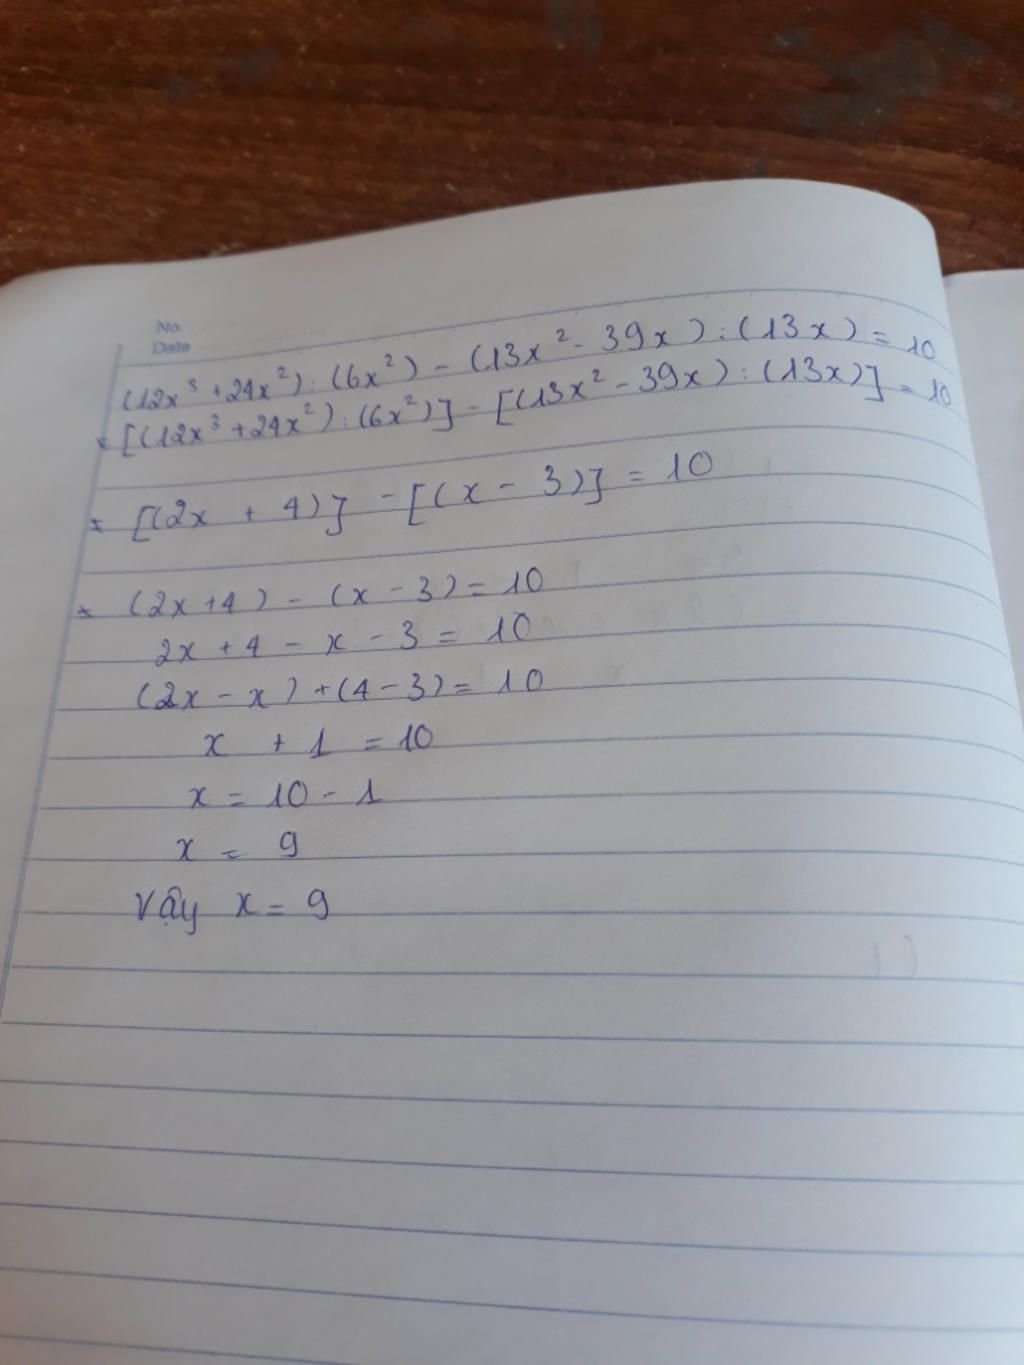 No.
Date
(12x³ + 24x²) : (6x²) - (13x² - 39x) : (13x) = 10
= [(12x³ + 24x²) : (6x²)] - [(13x² - 39x) : (13x)] = 10
= [(2x + 4)] - [(x - 3)] = 10
= (2x + 4) - (x - 3) = 10
2x + 4 - x - 3 = 10
(2x - x) + (4 - 3) = 10
x + 1 = 10
x = 10 - 1
x = 9
Vậy x = 9